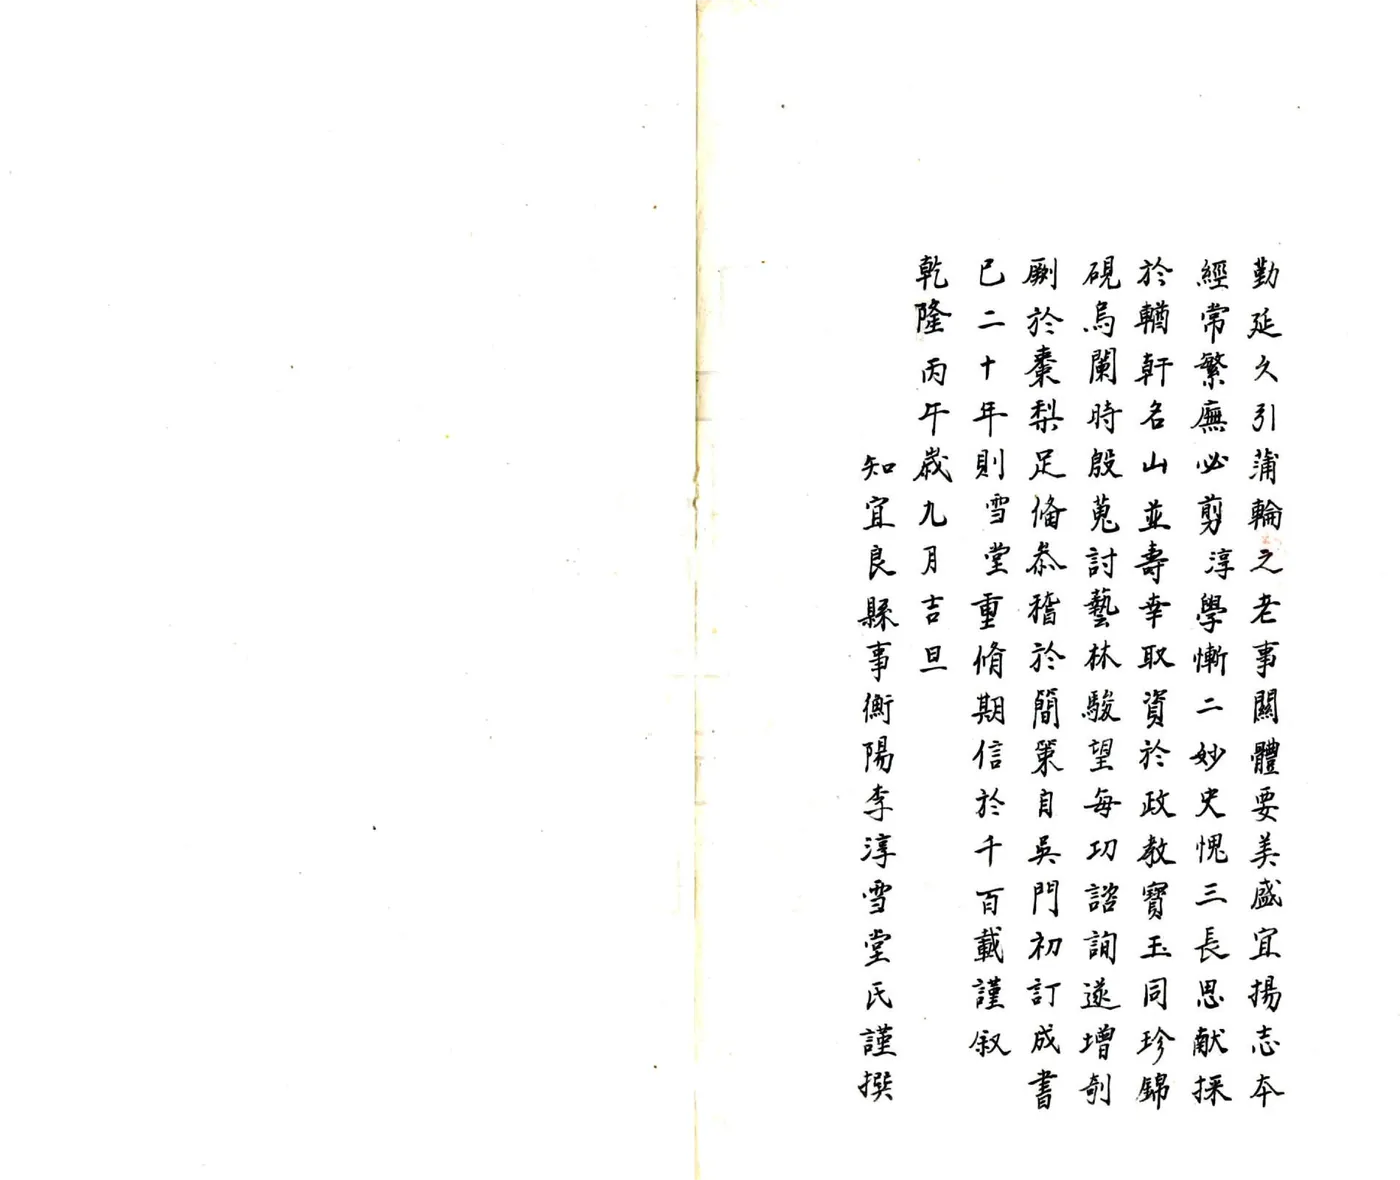 勤延久引蒲輪之老事關體要美盛宜揚志本
經常繁廡必剪淳學慚二妙史愧三長思献採
於輶軒名山並壽幸取資於政教寳玉同珍錦
硯烏闌時殷蒐討藝林駿望每功諮詢遂增剞
劂於棗梨足俻叅稽於簡策自吳門初訂成書
已二十年則雪堂重脩期信於千百載謹叙
乾隆丙午歲九月吉旦
知宜良縣事衡陽李淳雪堂氏謹撰